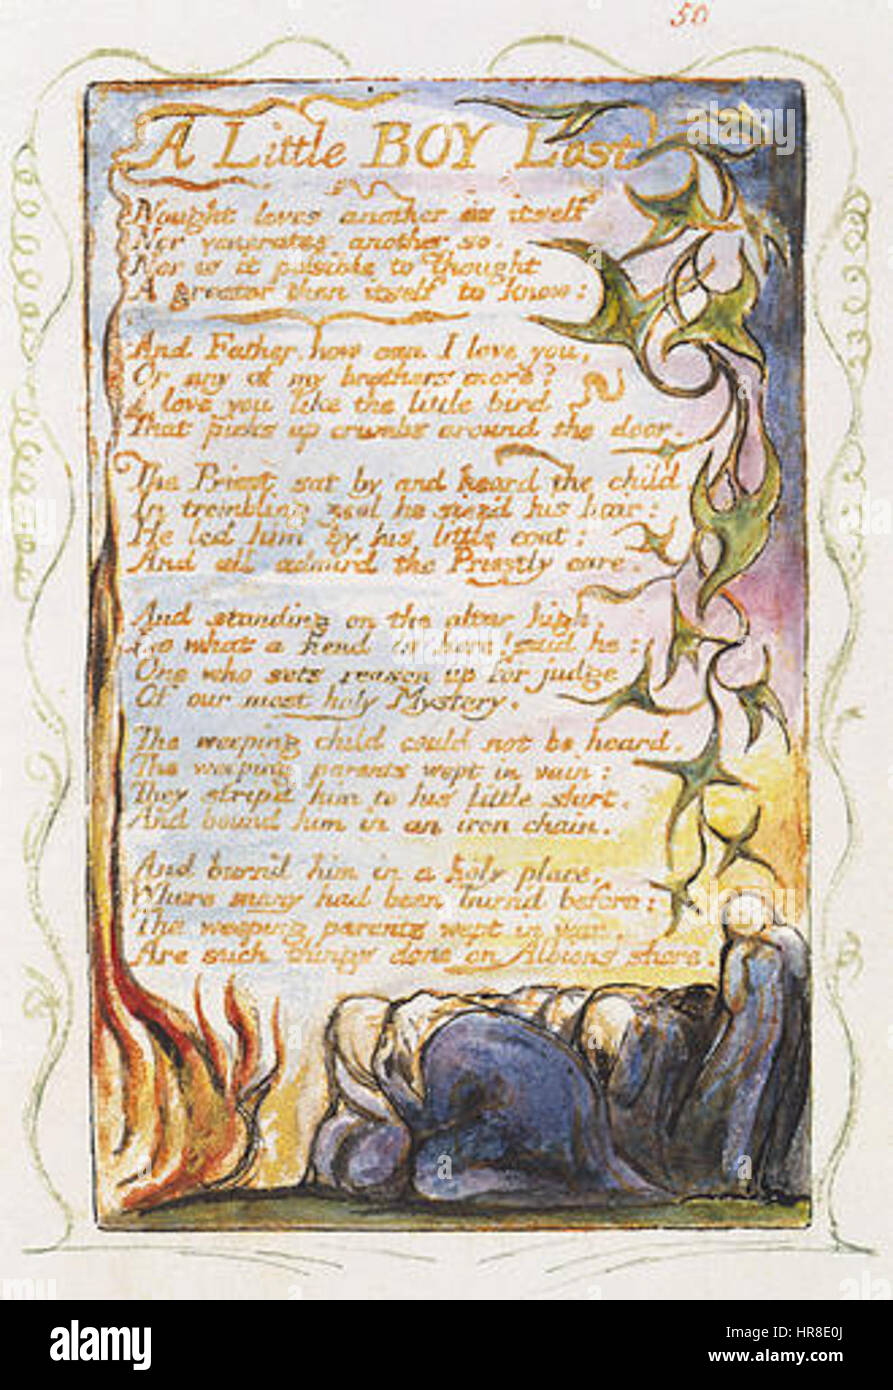 50
A Little BOY Lost
Nought loves another as itself
Nor venerates another so.
Nor is it possible to Thought
A greater than itself to know:
And Father, how can I love you,
Or any of my brothers more?
I love you like the little bird
That picks up crumbs around the door.
The Priest sat by and heard the child
In trembling zeal he siez'd his hair:
He led him by his little coat:
And all admir'd the Priestly care.
And standing on the altar high,
Lo what a fiend is here! said he:
One who sets reason up for judge
Of our most holy Mystery.
The weeping child could not be heard.
The weeping parents wept in vain:
They strip'd him to his little shirt.
And bound him in an iron chain.
And burn'd him in a holy place,
Where many had been burn'd before:
The weeping parents wept in vain.
Are such things done on Albions shore.
a alamy stock photo
HR8E0J
www.alamy.com